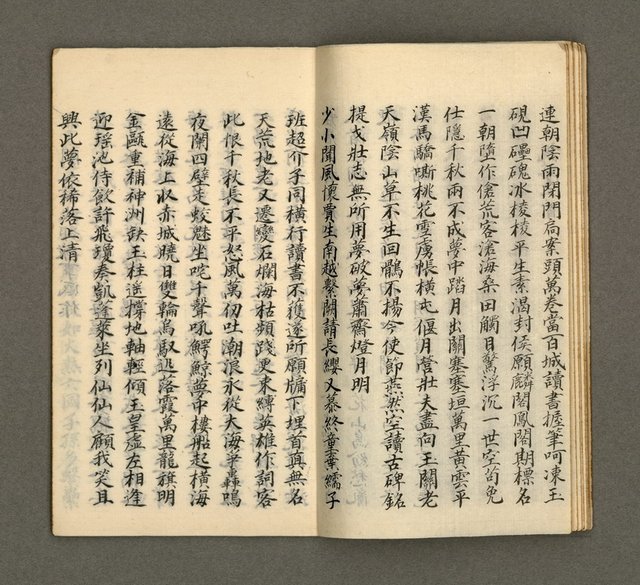 連朝陰雨閉門扃案頭萬卷當百城讀書握筆呵凍玉
硯凹礧磈冰棱棱平生素渴封侯願麟閣鳳閣期標名
一朝墮作傖荒客滄海桑田觸目驚浮沉一世空苟免
仕隱千秋兩不成夢中踏月出關塞塞垣萬里黃雲平
漢馬驕嘶桃花雪虜帳橫屯偃月營壯夫盡向玉關老
天嶺陰山草不生回鶻不揚今使節燕然空讀古碑銘
提戈壯志無所用夢破蕭齋燈月明
少小聞風懷賈生南越繫闕請長纓又慕終童棄繻子
班超介子同橫行讀書不獲遂所願牖下埋首真無名
天荒地老又遷變石爛海枯頻踐更束縛英雄作詞客
此恨千秋長不平怒風萬初吐潮浪永從大海爭轟鳴
夜闌四壁走蛟魅坐咤千聲吼鱷鯨夢中樓船起橫海
遠從海上收赤城曉日雙輪烏馭迅落霞萬里龍旗明
金甌重補神州缺玉柱遙撐地軸輕傾玉皇虛左相逢
迎瑤池侍飲許飛瓊奏凱蓬萊坐列仙仙人顧我笑且
興此夢依稀落上清